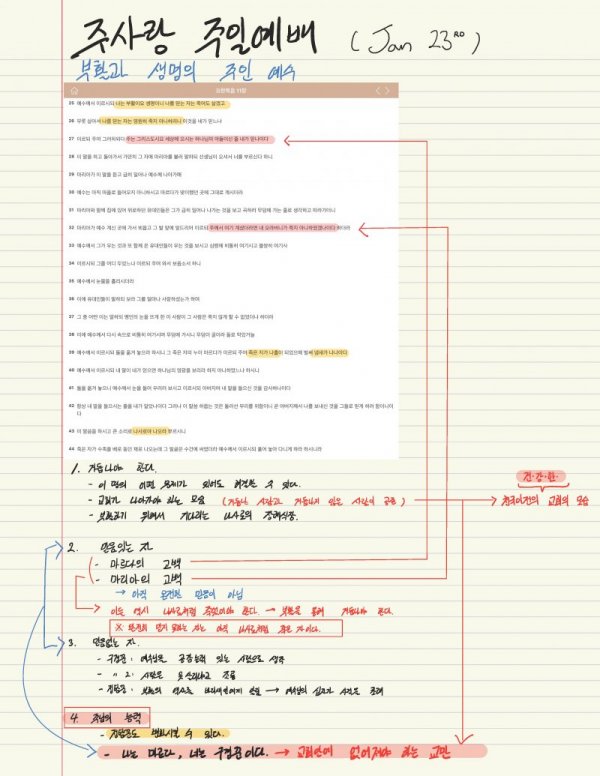 주사랑 주일예배 ( Jan 23RD )
부활과 생명의 주인 예수
요한복음 11장
25 예수께서 이르시되 나는 부활이요 생명이니 나를 믿는 자는 죽어도 살겠고
26 무릇 살아서 나를 믿는 자는 영원히 죽지 아니하리니 이것을 네가 믿느냐
27 이르되 주여 그러하외다 주는 그리스도시요 세상에 오시는 하나님의 아들이신 줄 내가 믿나이다
28 이 말을 하고 돌아가서 가만히 그 자매 마리아를 불러 말하되 선생님이 오셔서 너를 부르신다 하니
29 마리아가 이 말을 듣고 급히 일어나 예수께 나아가매
30 예수는 아직 마을로 들어오지 아니하시고 마르다가 맞이했던 곳에 그대로 계시더라
31 마리아와 함께 집에 있어 위로하던 유대인들은 그가 급히 일어나 나가는 것을 보고 곡하러 무덤에 가는 줄로 생각하고 따라가더니
32 마리아가 예수 계신 곳에 가서 뵈옵고 그 발 앞에 엎드리어 이르되 주께서 여기 계셨더라면 내 오라버니가 죽지 아니하였겠나이다 하더라
33 예수께서 그가 우는 것과 또 함께 온 유대인들이 우는 것을 보시고 심령에 비통히 여기시고 불쌍히 여기사
34 이르시되 그를 어디 두었느냐 이르되 주여 와서 보옵소서 하니
35 예수께서 눈물을 흘리시더라
36 이에 유대인들이 말하되 보라 그를 얼마나 사랑하셨는가 하며
37 그 중 어떤 이는 말하되 맹인의 눈을 뜨게 한 이 사람이 그 사람은 죽지 않게 할 수 없었더냐 하더라
38 이에 예수께서 다시 속으로 비통히 여기시며 무덤에 가시니 무덤이 굴이라 돌로 막았거늘
39 예수께서 이르시되 돌을 옮겨 놓으라 하시니 그 죽은 자의 누이 마르다가 이르되 주여 죽은 지가 나흘이 되었으매 벌써 냄새가 나나이다
40 예수께서 이르시되 내 말이 네가 믿으면 하나님의 영광을 보리라 하지 아니하였느냐 하시니
41 돌을 옮겨 놓으니 예수께서 눈을 들어 우러러 보시고 이르시되 아버지여 내 말을 들으신 것을 감사하나이다
42 항상 내 말을 들으시는 줄을 내가 알았나이다 그러나 이 말씀 하옵는 것은 둘러선 무리를 위함이니 곧 아버지께서 나를 보내신 것을 그들로 믿게 하려 함이니이다
43 이 말씀을 하시고 큰 소리로 나사로야 나오라 부르시니
44 죽은 자가 수족을 베로 동인 채로 나오는데 그 얼굴은 수건에 싸였더라 예수께서 이르시되 풀어 놓아 다니게 하라 하시니라
1. 거듭나야 한다.
- 이 땅의 어떤 문제가 있어도 해결할 수 있다.
- 교회가 나아가야 하는 모습 (거듭난 사람과 거듭나지 않은 사람이 공존)
건·강·한
- 부활하기 위해서 기다리는 나사로의 장례식장.
2. 믿음있는 자
- 마르다의 고백
- 마리아의 고백
→ 아직 온전한 믿음이 아님
이들 역시 나사로처럼 죽었어야 한다. → 부활을 통해 거듭나야 한다.
※ 온전히 믿지 못하는 자는 아직 나사로처럼 죽은 자이다.
3. 믿음없는 자
- 구경꾼: 예수님을 공감능력 있는 사람으로 생각
- " 2: 사람은 못 살린다고 조롱
4. 주님의 능력
변화시킬 수 있다.
- 나는 마르다, 너는 구경꾼이다. → 교회안에 없어져야 하는 교만